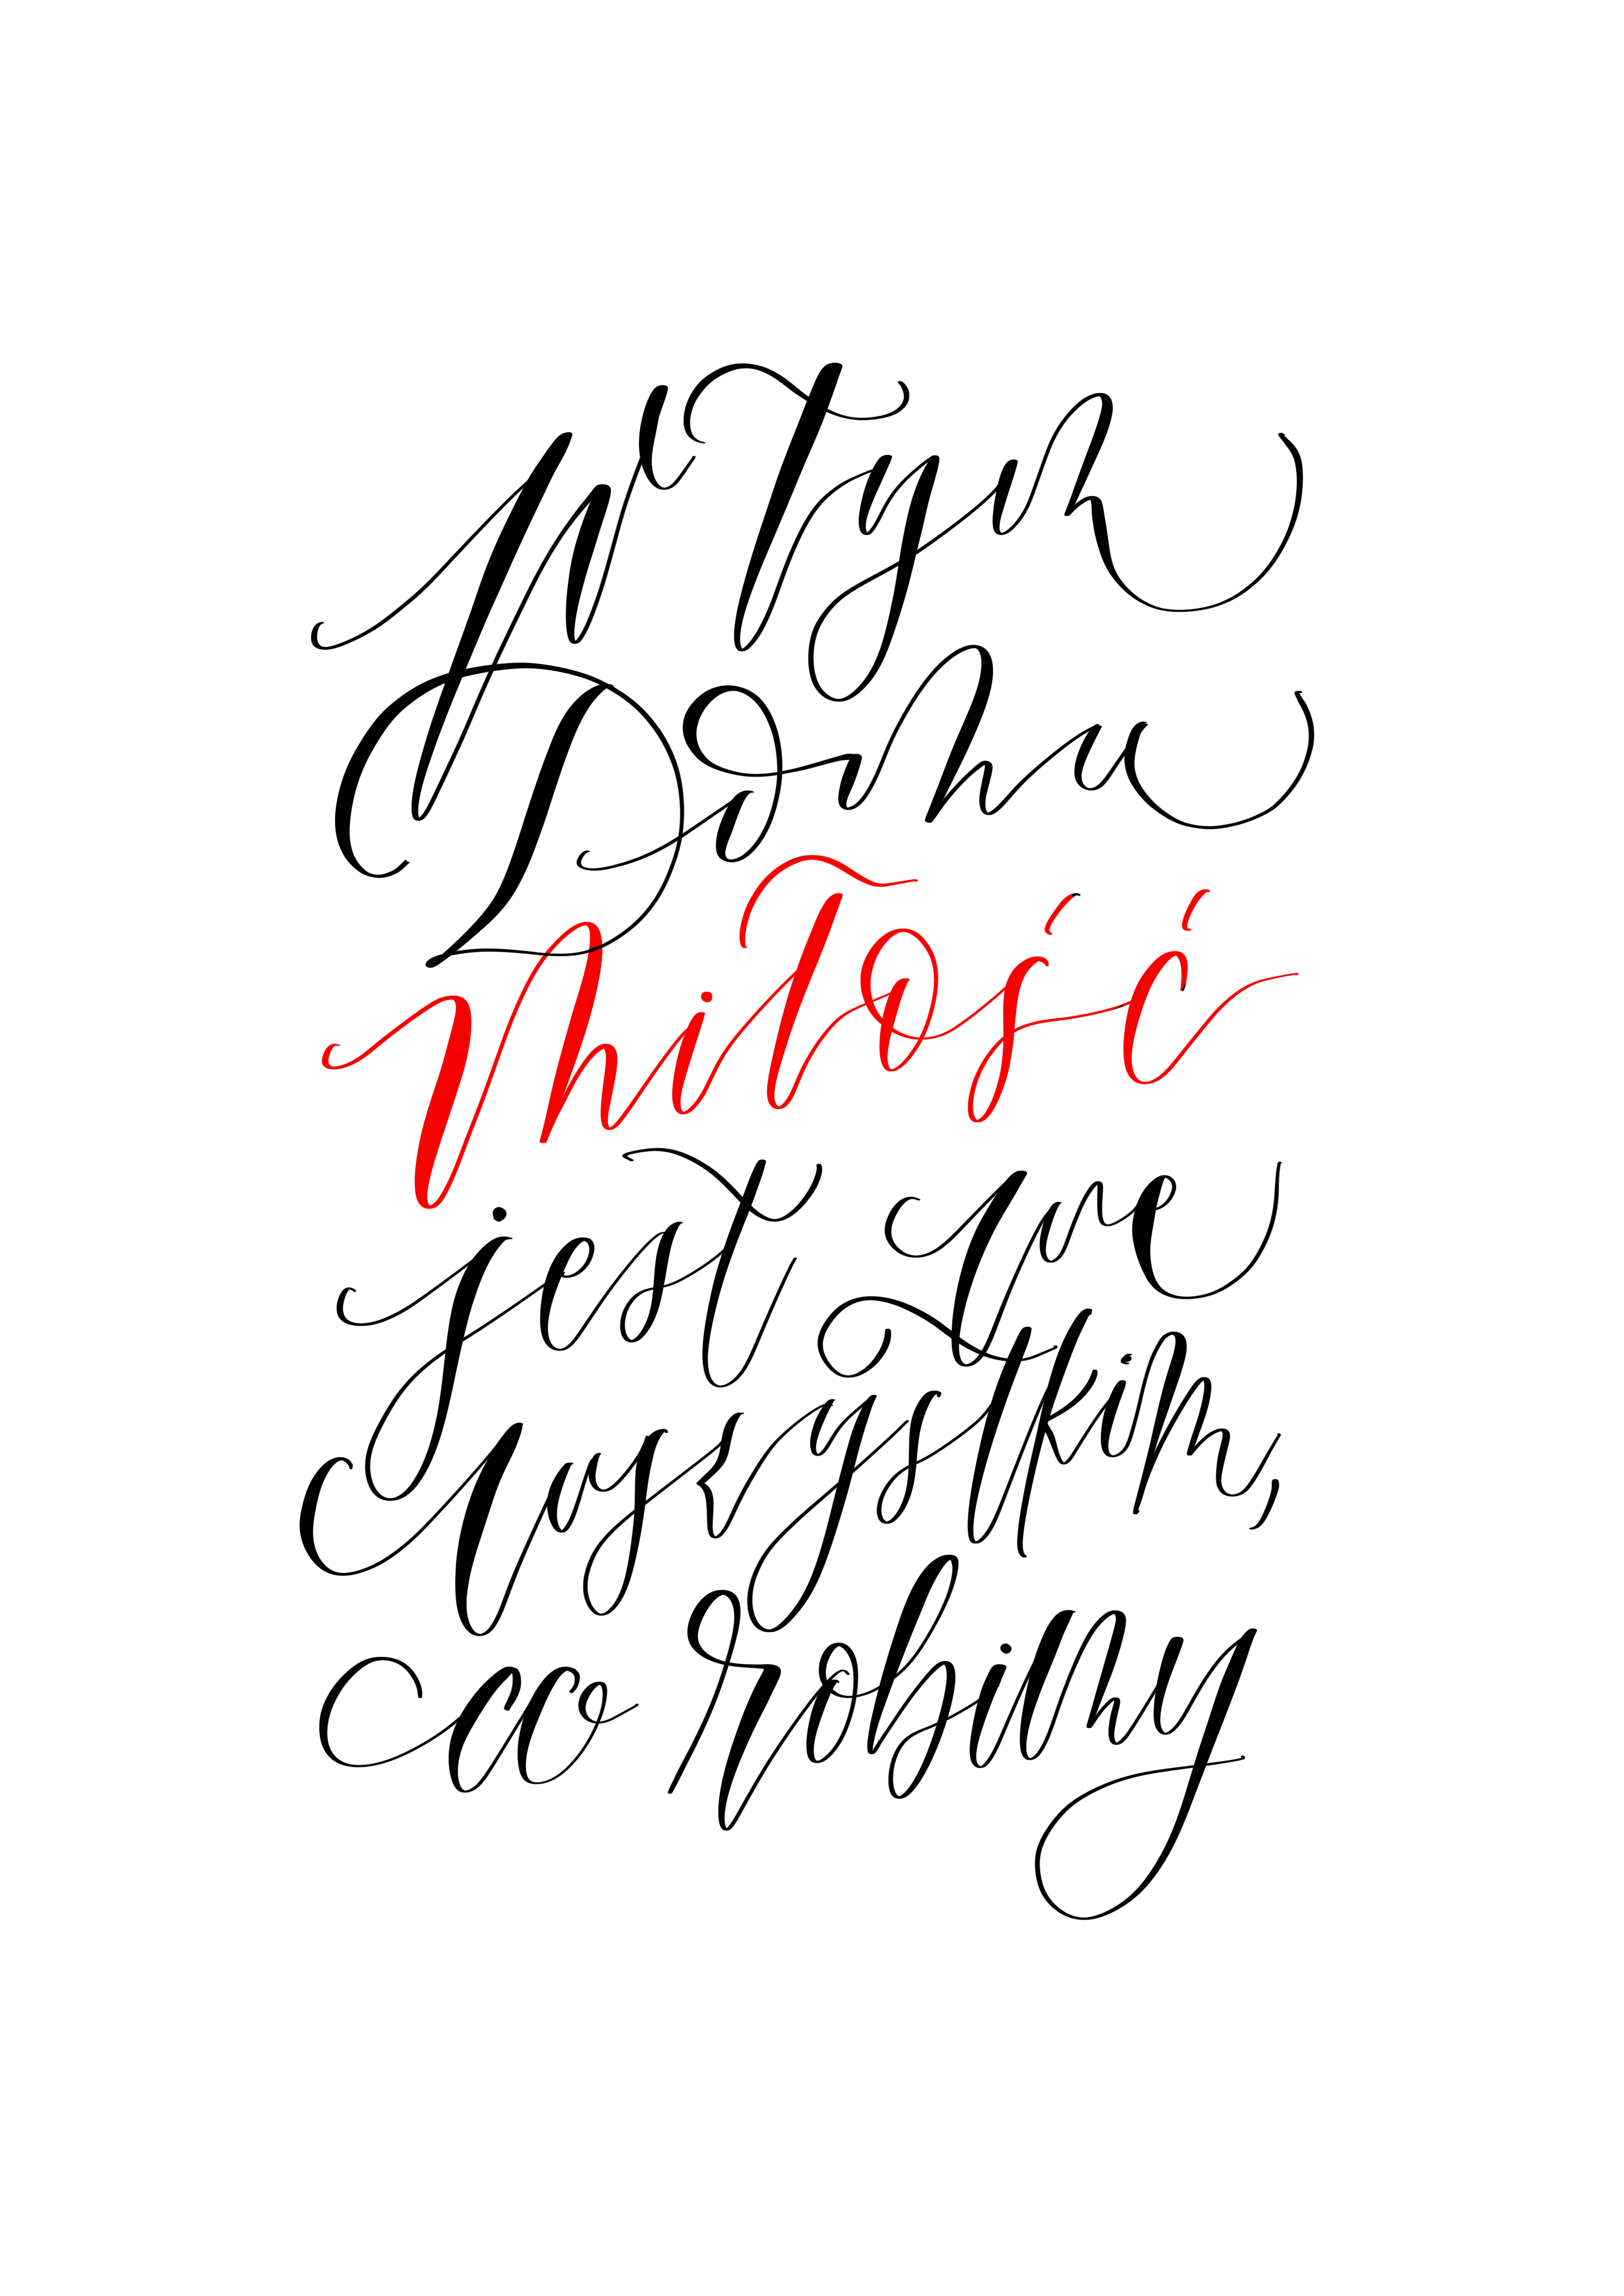 W Tym
Domu
Miłość
jest We
wszystkim,
co Robimy